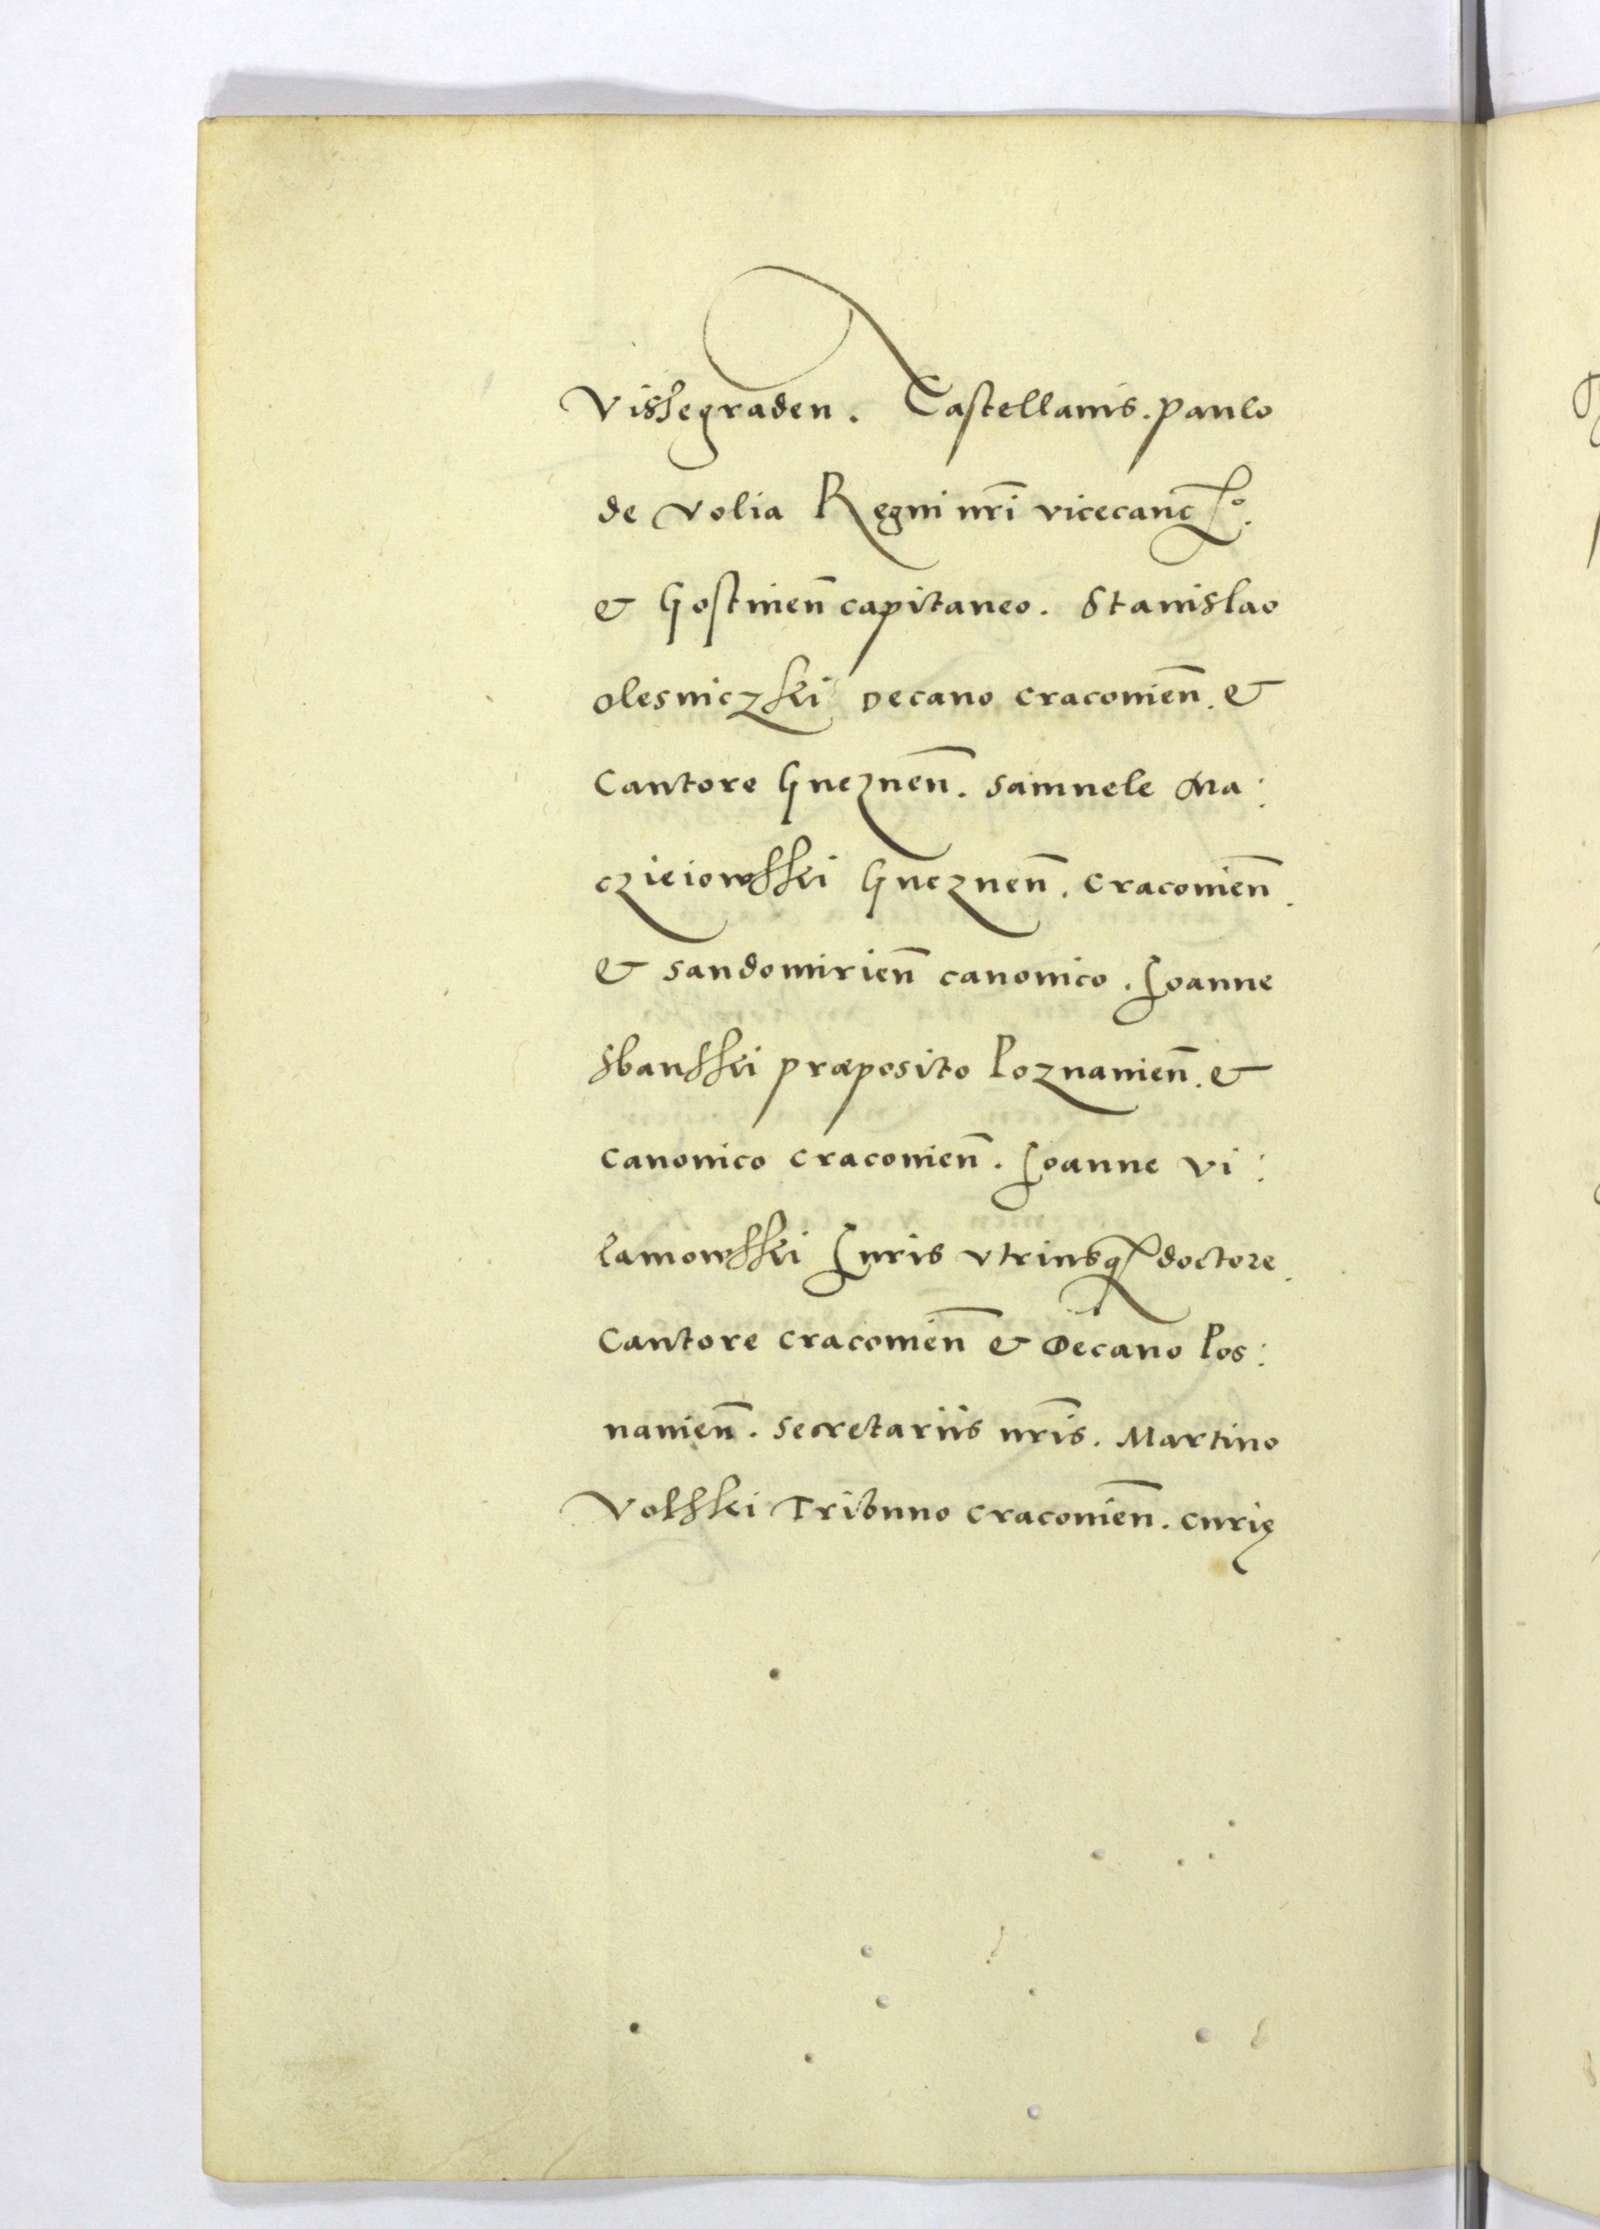 Vissegraden. Castellanis. Paulo
de Volia Regni nr̄i vicecanc̄ło.
& Gostinen̄ capitaneo. Stanislao
olesniczski Decano Cracovien̄. &
Cantore Gneznen̄. Samuele Ma:
czieiowsski Gneznen̄. Cracovien̄.
& Sandomirien̄ canonico. Ioanne
sbansski præposito Poznanien̄. &
canonico Cracovien̄. Ioanne Vi:
lamowsski Iuris vtriusqꝫ doctore.
Cantore Cracovien̄ & Decano Pos:
nanien̄. Secretariis nr̄is. Martino
Volsski Tribuno Cracovien̄. curię